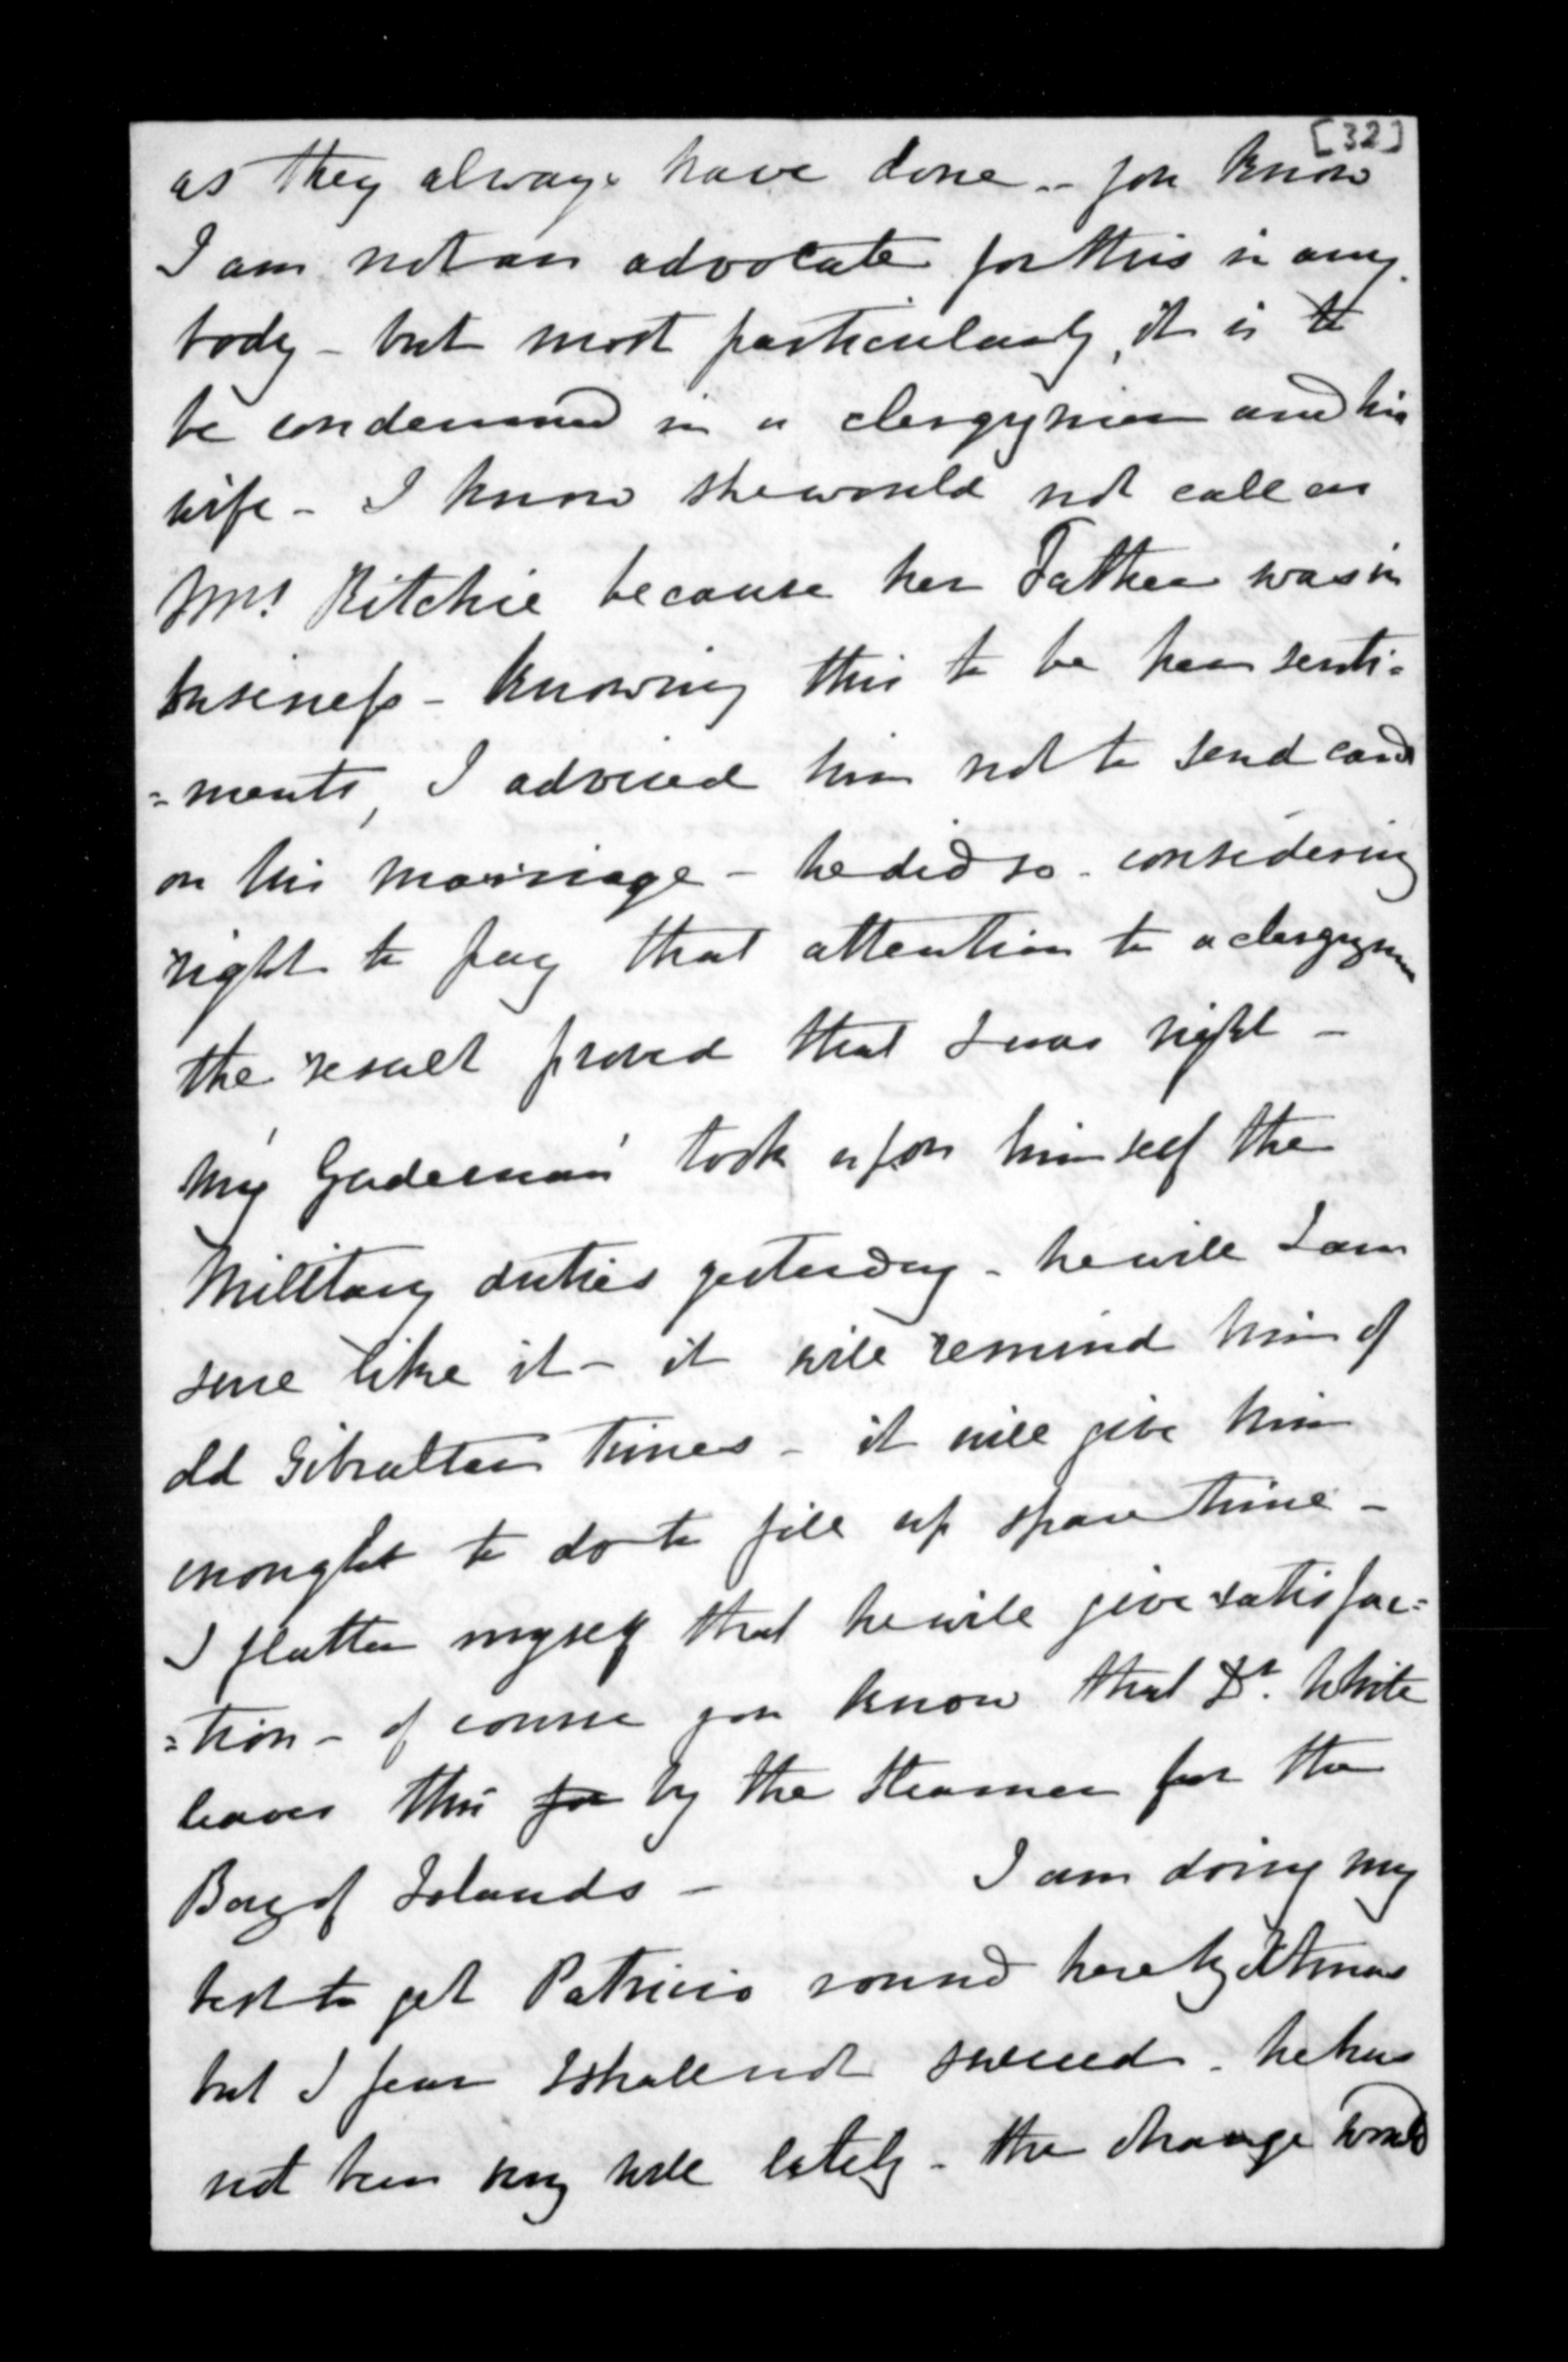 [32]
as they always have done -- you know
I am not an advocate for this in any
body - but most particularly, it is to
be condemned in a clergyman and his
wife - I know she would not call on
Mrs Ritchie because her Father was in
business - Knowing this to be her senti=
=ments, I advised him not to send cards
on his marriage - he did so - considering
right to pay that attention to a clergyman
the result proved that I was right -
'my Gudeman' took upon himself the
Military duties yesterday - he will I am
sure like it - it will remind him of
old Gibraltar times - it will give him
enought to do to fill up spare time -
I flatter myself that he will give satisfac=
=tion - of course you know that Dr. White
leaves this for by the steamer for the
Bay of Islands - I am doing my
best to get Patricio round here by Xtmas
but I fear I shall not succeed - he has
not been very well lately - the change would